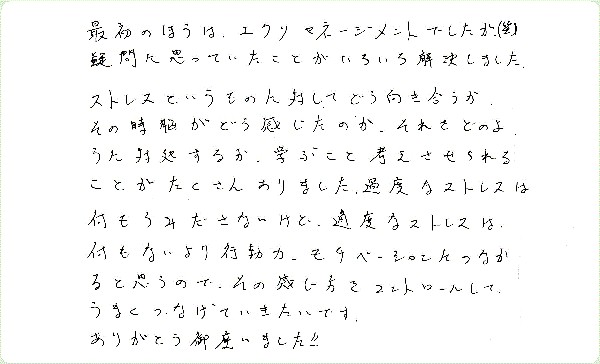 最初のほうは、エクササマネージメントでしたが(笑)
疑問に思っていたことがいろいろ解決しました。
ストレスというものに対してどう向き合うか、
その時脳がどう感じたのか、それをどのよ
うに対処するか、学ぶこと考えさせられる
ことがたくさんありました。過度なストレスは
何もうみださないけど、適度なストレスは、
何もないより行動力、モチベーションにつなが
ると思うので、その感じ方をコントロールして、
うまくつなげていきたいです。
ありがとう御座いました!!